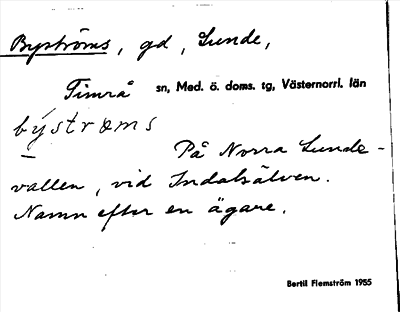 Byströms, gd, Lunde,
Timrå sn, Med. ö. doms. tg, Västernorrl. län
býströms
På Norra Lunde-
vallen, vid Indalsälven.
Namn efter en ägare.
Bertil Flemström 1955